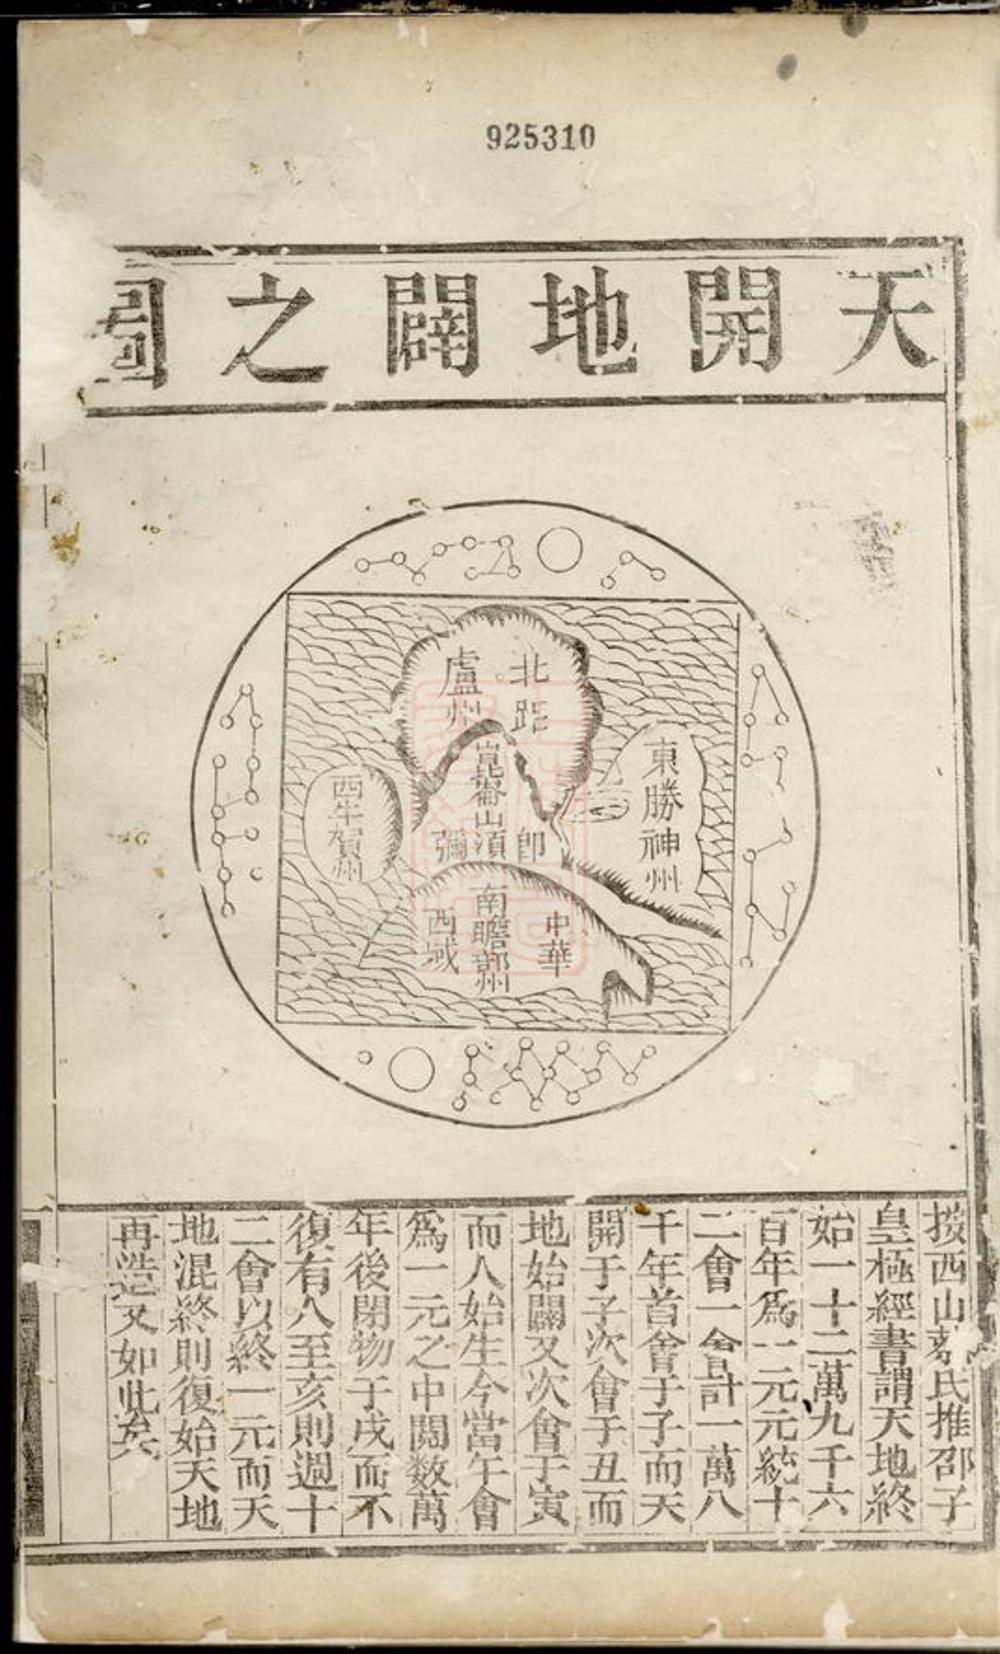 925310
天開地闢之圖
北距
盧州
東勝神州
崑崙山須
卽
彌
西牛賀州
中華
南贍部州
西域
按西山蔡氏推邵子
皇極經書謂天地終
始一十二萬九千六
百年爲一元元統十
二會一會計一萬八
千年首會于子而天
開于子次會于丑而
地始闢又次會于寅
而人始生今當午會
爲一元之中閱数萬
年後閉物于戌而不
復有人至亥則週十
二會以終一元而天
地混終則復始天地
再造又如此矣